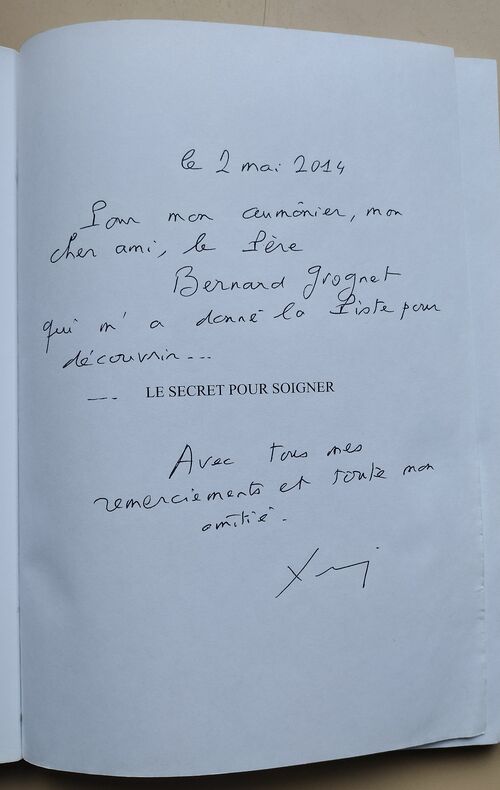 le 2 mai 2014
Pour mon aumônier, mon
cher ami, le Père
Bernard Grognet
qui m'a donné la Piste pour
découvrir...
... LE SECRET POUR SOIGNER
Avec tous mes
remerciements et toute mon
amitié.